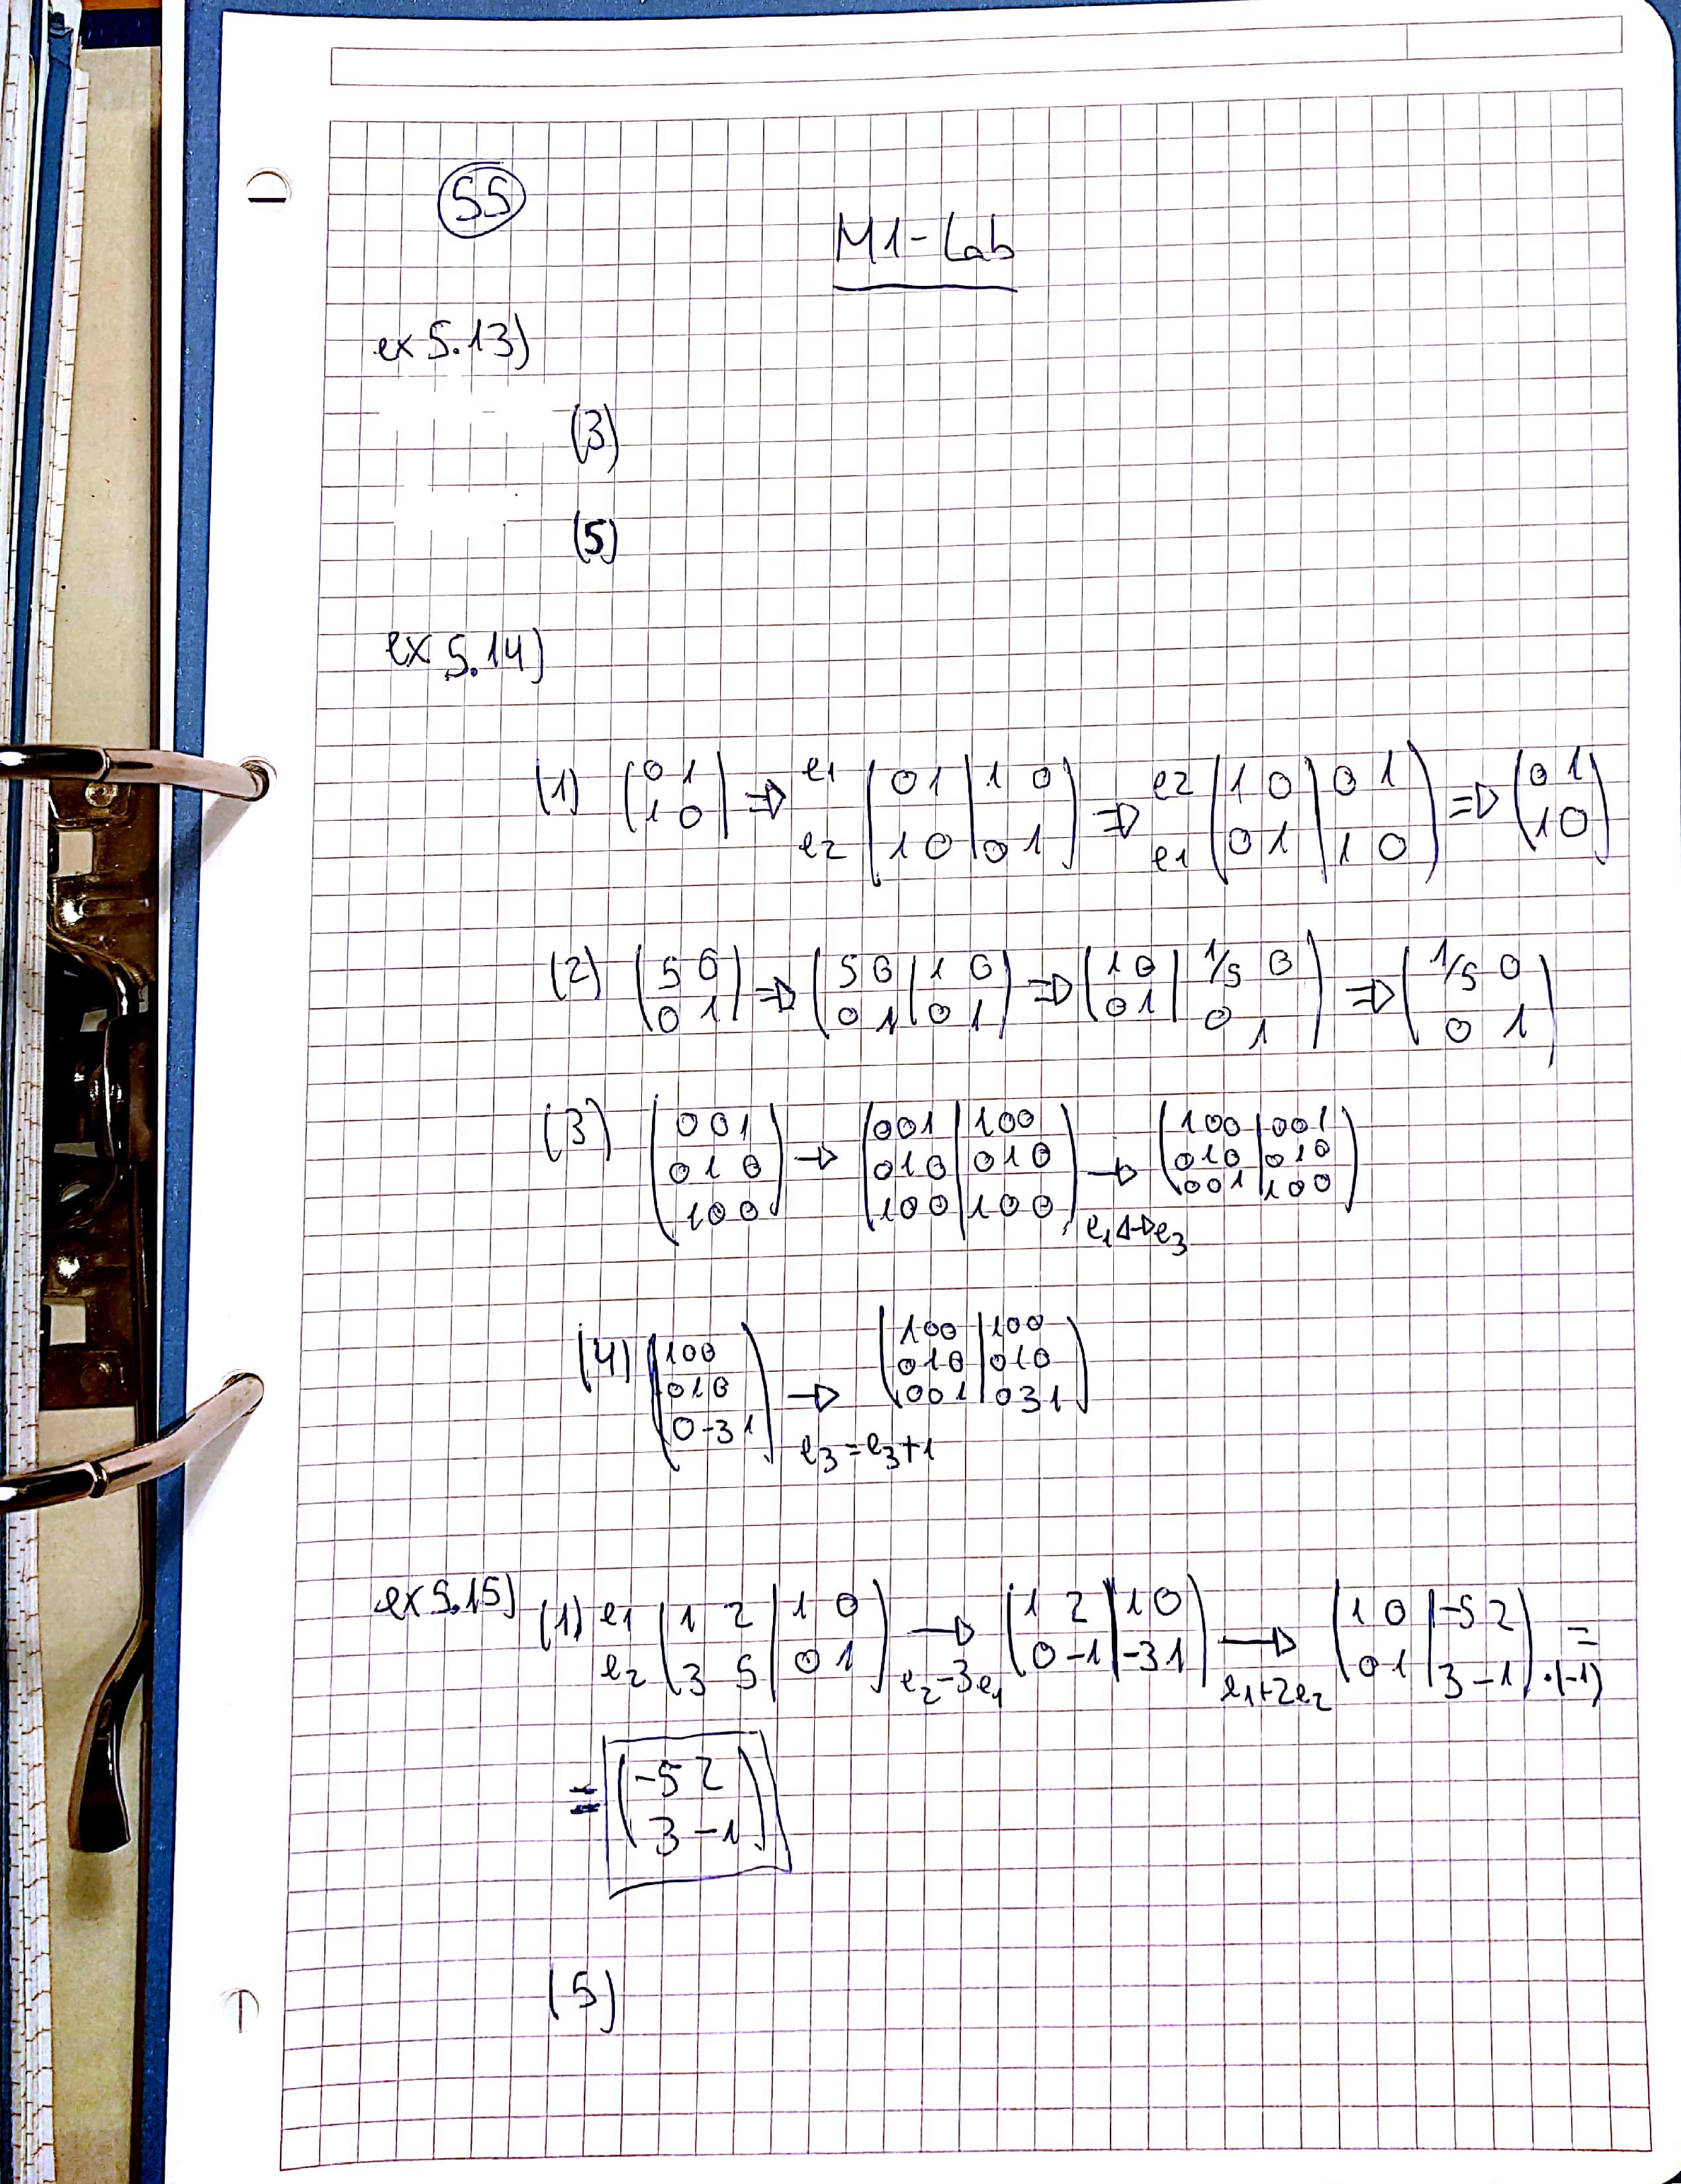 55
M1-Lab
ex 5.13)
(3)
(5)
ex 5.14)
(1) (0 1 / 1 0) => e1 e2 (0 1 | 1 0 / 1 0 | 0 1) => e2 e1 (1 0 | 0 1 / 0 1 | 1 0) => (0 1 / 1 0)
(2) (5 0 / 0 1) => (5 0 | 1 0 / 0 1 | 0 1) => (1 0 | 1/5 0 / 0 1 | 0 1) => (1/5 0 / 0 1)
(3) (0 0 1 / 0 1 0 / 1 0 0) → (0 0 1 | 1 0 0 / 0 1 0 | 0 1 0 / 1 0 0 | 1 0 0) → e1 ↔ e3 (1 0 0 | 0 0 1 / 0 1 0 | 0 1 0 / 0 0 1 | 1 0 0)
(4) (1 0 0 / 0 1 0 / 0 -3 1) → e3 = e3+1 (1 0 0 | 1 0 0 / 0 1 0 | 0 1 0 / 0 0 1 | 0 3 1)
ex 5.15) (1) e1 e2 (1 2 | 1 0 / 3 5 | 0 1) → e2-3e1 (1 2 | 1 0 / 0 -1 | -3 1) → e1+2e2 (1 0 | -5 2 / 0 1 | 3 -1) ·(-1) =
= (-5 2 / 3 -1)
(5)